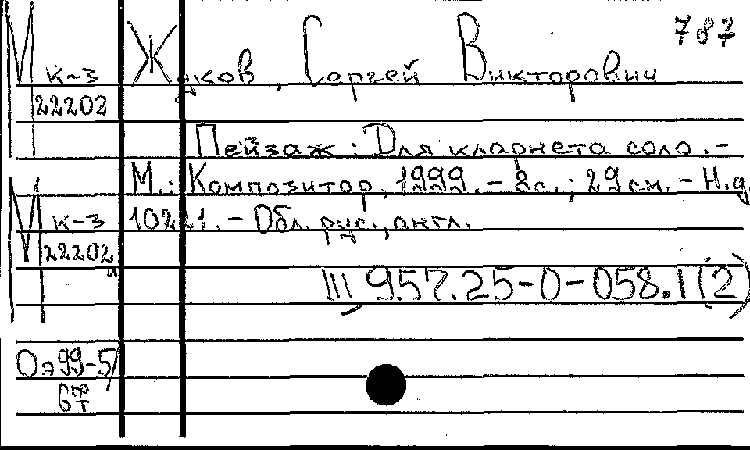 787
Жуков, Сергей Викторович
М к-3
22202
Пейзаж : Для кларнета соло. -
М.: Композитор, 1999. - 8 с.; 29 см. - Н.д.
10221. - Обл. рус., англ.
М к-3
22202
III 957.25-0-058.1(2)
Оэ 99-5/